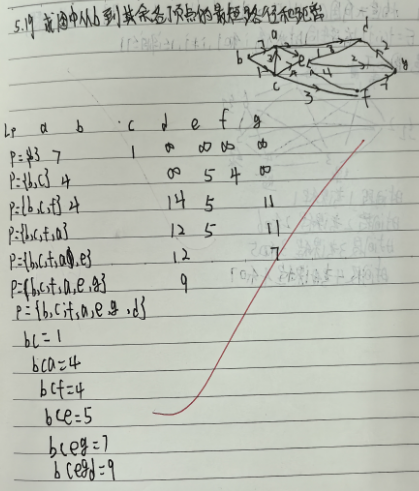 5.19 求图中从b到其余各顶点的最短路径和距离
b 7 a 3 c 1 e 1 3 d 2 2 g 4 4 7 3 f
Lp a b c d e f g
P={b} 7 1 ∞ ∞ ∞ ∞
P={b,c} 4 ∞ 5 4 ∞
P={b,c,f} 4 14 5 11
P={b,c,f,a} 12 5 11
P={b,c,f,a,e} 12 7
P={b,c,f,a,e,g} 9
P={b,c,f,a,e,g,d}
bc=1
bca=4
bcf=4
bce=5
bceg=7
bcegd=9